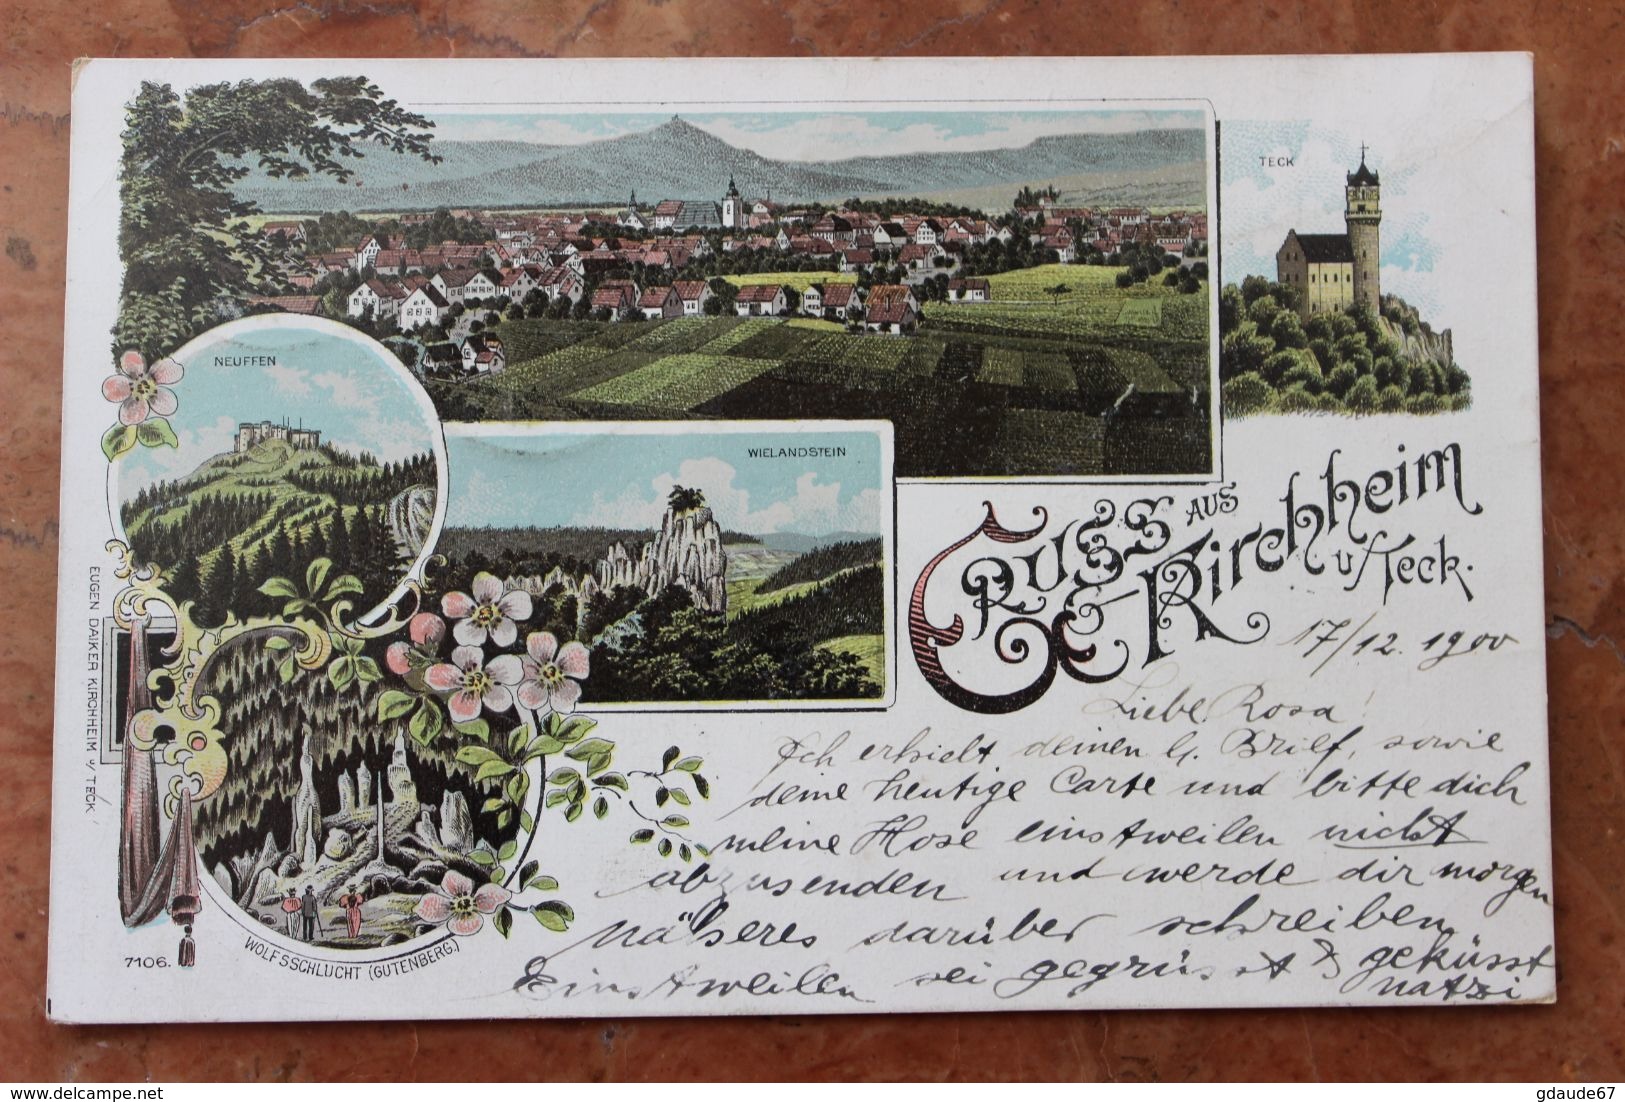 TECK
NEUFFEN
WIELANDSTEIN
GRUSS AUS
Kirchheim
u/Teck.
17/12. 1900
Liebe Rosa!
Ich erhielt deinen lb. Brief, sowie
deine heutige Carte und bitte dich
meine Hose einstweilen nicht
abzusenden und werde dir morgen
näheres darüber schreiben
Einstweilen sei gegrüsst & geküsst
Natzi
EUGEN DAIKER KIRCHHEIM u/TECK
WOLFSSCHLUCHT (GUTENBERG.)
7106.
delcampe.net
gdaude67